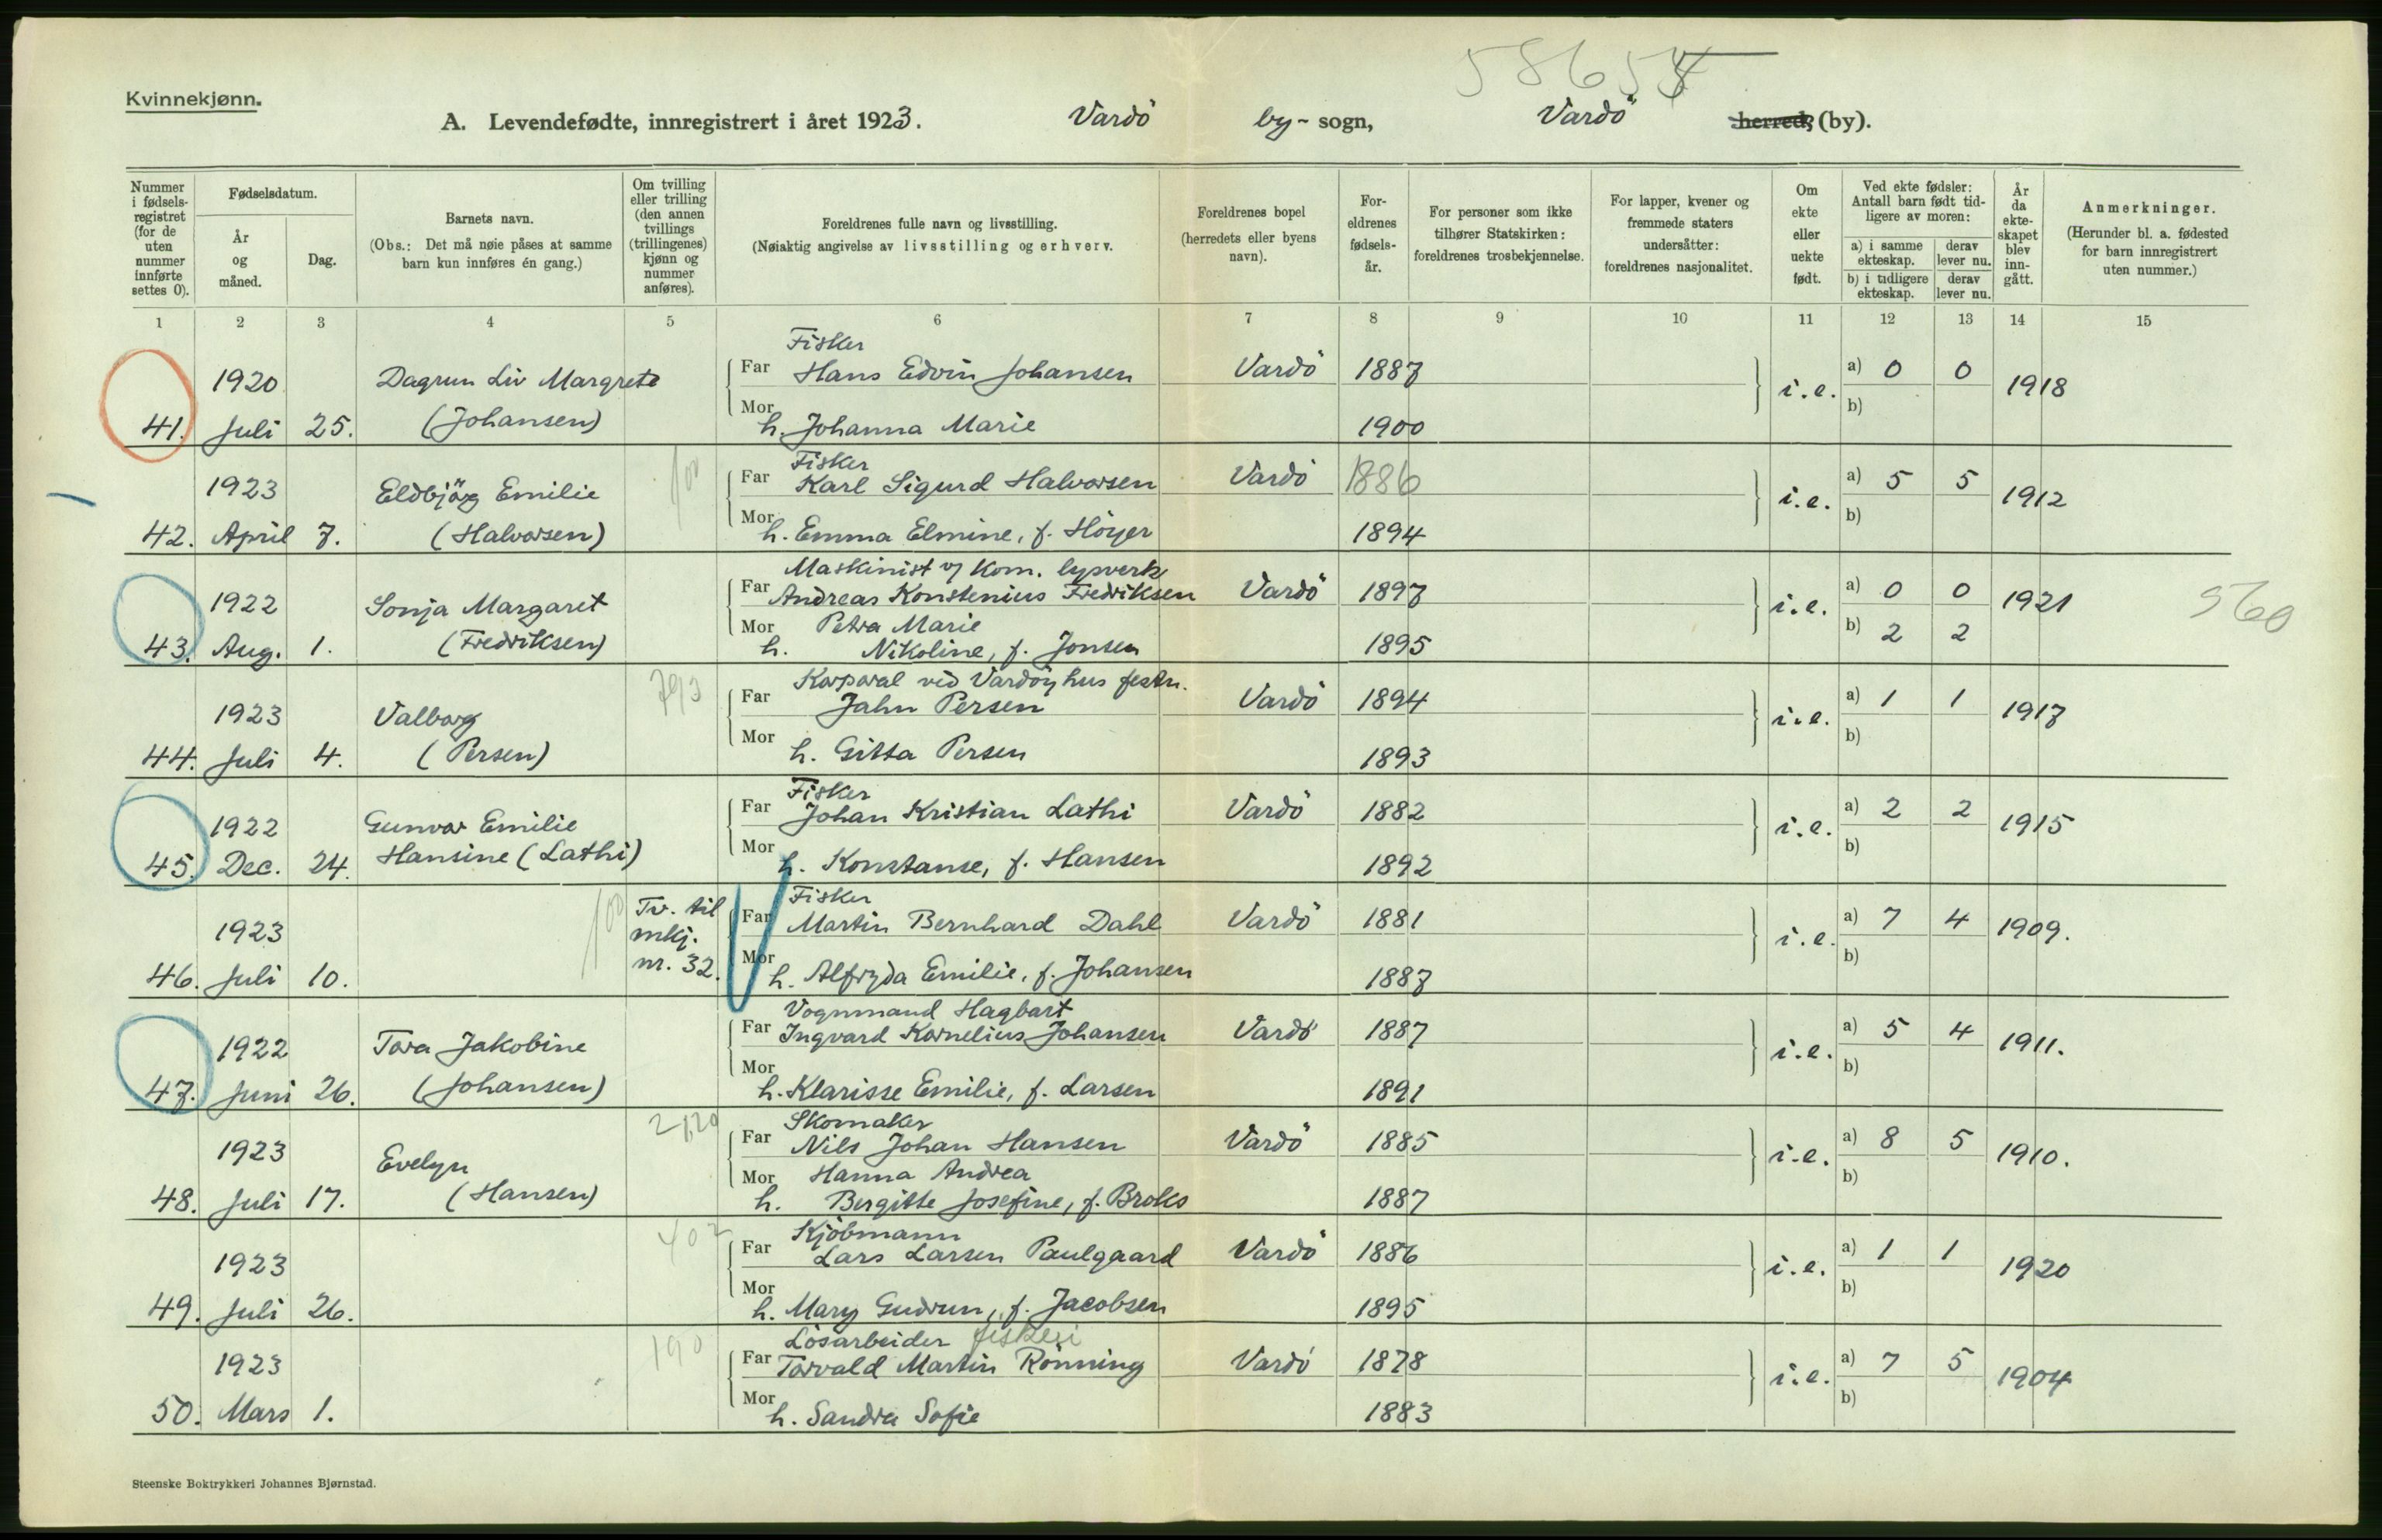 Kvinnekjønn.
5865
A. Levendefødte, innregistrert i året 1923. Vardö by- sogn, Vardö herred, (by).
Nummer i fødsels-registret (for de uten nummer innførte settes 0).
Fødselsdatum.
År og måned.
Dag.
Barnets navn.
(Obs.: Det må nøie påses at samme barn kun innføres én gang.)
Om tvilling eller trilling (den annen tvillings (trillingenes) kjønn og nummer anføres).
Foreldrenes fulle navn og livsstilling.
(Nøiaktig angivelse av livsstilling og erhverv.
Foreldrenes bopel (herredets eller byens navn).
For-eldrenes fødsels-år.
For personer som ikke tilhører Statskirken: foreldrenes trosbekjennelse.
For lapper, kvener og fremmede staters undersåtter: foreldrenes nasjonalitet.
Om ekte eller uekte født.
Ved ekte fødsler: Antall barn født tid-ligere av moren:
a) i samme ekteskap.
derav lever nu.
b) i tidligere ekteskap.
derav lever nu.
År da ekte-skapet blev inn-gått.
Anmerkninger.
(Herunder bl. a. fødested for barn innregistrert uten nummer.)
1 2 3 4 5 6 7 8 9 10 11 12 13 14 15
Fisker
1920 Dagrun Liv Margrete Far Hans Edvin Johansen Vardö 1887 i.e. a) 0 0 1918
41. Juli 25. (Johansen) Mor h. Johanna Marie 1900 b)
100 Fisker
1923 Eldbjörg Emilie Far Karl Sigurd Halvorsen Vardö 1886 i.e. a) 5 5 1912
42. April 7. (Halvorsen) Mor h. Emma Elmine, f. Höyer 1894 b)
Maskinist v/ kom. lysverk
1922 Sonja Margaret Far Andreas Konstenius Fredriksen Vardö 1897 i.e. a) 0 0 1921 560
Mor Petra Marie
43. Aug. 1. (Fredriksen) h. Nikoline, f. Jonsen 1895 b) 2 2
793 Korporal ved Vardöyhus festn.
1923 Valborg Far Jahn Persen Vardö 1894 i.e. a) 1 1 1917
44. Juli 4. (Persen) Mor h. Gitta Persen 1893 b)
Fisker
1922 Gunvor Emilie Far Johan Kristian Lathi Vardö 1882 i.e. a) 2 2 1915
45. Dec. 24. Hansine (Lathi) Mor h. Konstanse, f. Hansen 1892 b)
100 Tv. til Fisker
1923 mkj. Far Martin Bernhard Dahl Vardö 1881 i.e. a) 7 4 1909.
46. Juli 10. nr. 32. Mor h. Alfryda Emilie, f. Johansen 1887 b)
Vognmand Hagbart
1922 Tora Jakobine Far Ingvard Kornelius Johansen Vardö 1887 i.e. a) 5 4 1911.
47. Juni 26. (Johansen) Mor h. Klarisse Emilie, f. Larsen 1891 b)
Skomaker
1923 Evelyn Far Nils Johan Hansen Vardö 1885 i.e. a) 8 5 1910.
Mor Hanna Andrea
48. Juli 17. (Hansen) h. Bergitte Josefine, f. Broks 1887 b)
402 Kjöbmann
1923 Far Lars Larsen Paulgaard Vardö 1886 i.e. a) 1 1 1920
49. Juli 26. Mor h. Mary Gudrun, f. Jacobsen 1895 b)
190 Lösarbeider fiskeri
1923 Far Torvald Martin Rönning Vardö 1878 i.e. a) 7 5 1904
50. Mars 1. Mor h. Sandra Sofie 1883 b)
Steenske Boktrykkeri Johannes Bjørnstad.